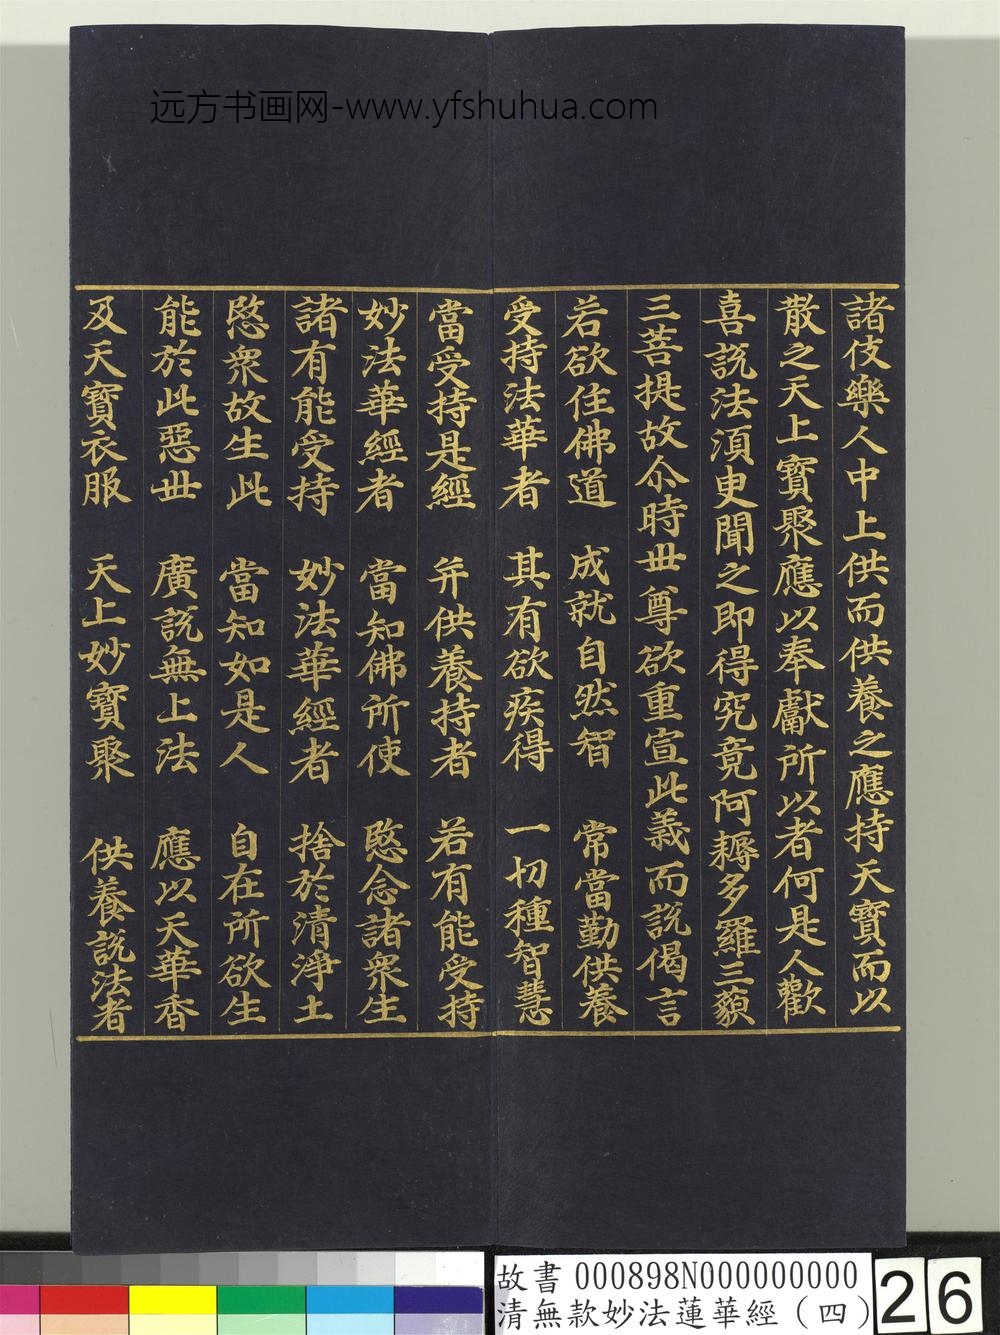 远方书画网-www.yfshuhua.com
諸伎樂人中上供而供養之應持天寶而以
散之天上寶聚應以奉獻所以者何是人歡
喜說法須臾聞之即得究竟阿耨多羅三藐
三菩提故尒時世尊欲重宣此義而說偈言
若欲住佛道　成就自然智　常當勤供養
受持法華者　其有欲疾得　一切種智慧
當受持是經　并供養持者　若有能受持
妙法華經者　當知佛所使　愍念諸衆生
諸有能受持　妙法華經者　捨於清淨土
愍衆故生此　當知如是人　自在所欲生
能於此惡世　廣說無上法　應以天華香
及天寶衣服　天上妙寶聚　供養說法者
故書 000898N000000000
清無款妙法蓮華經（四）
26